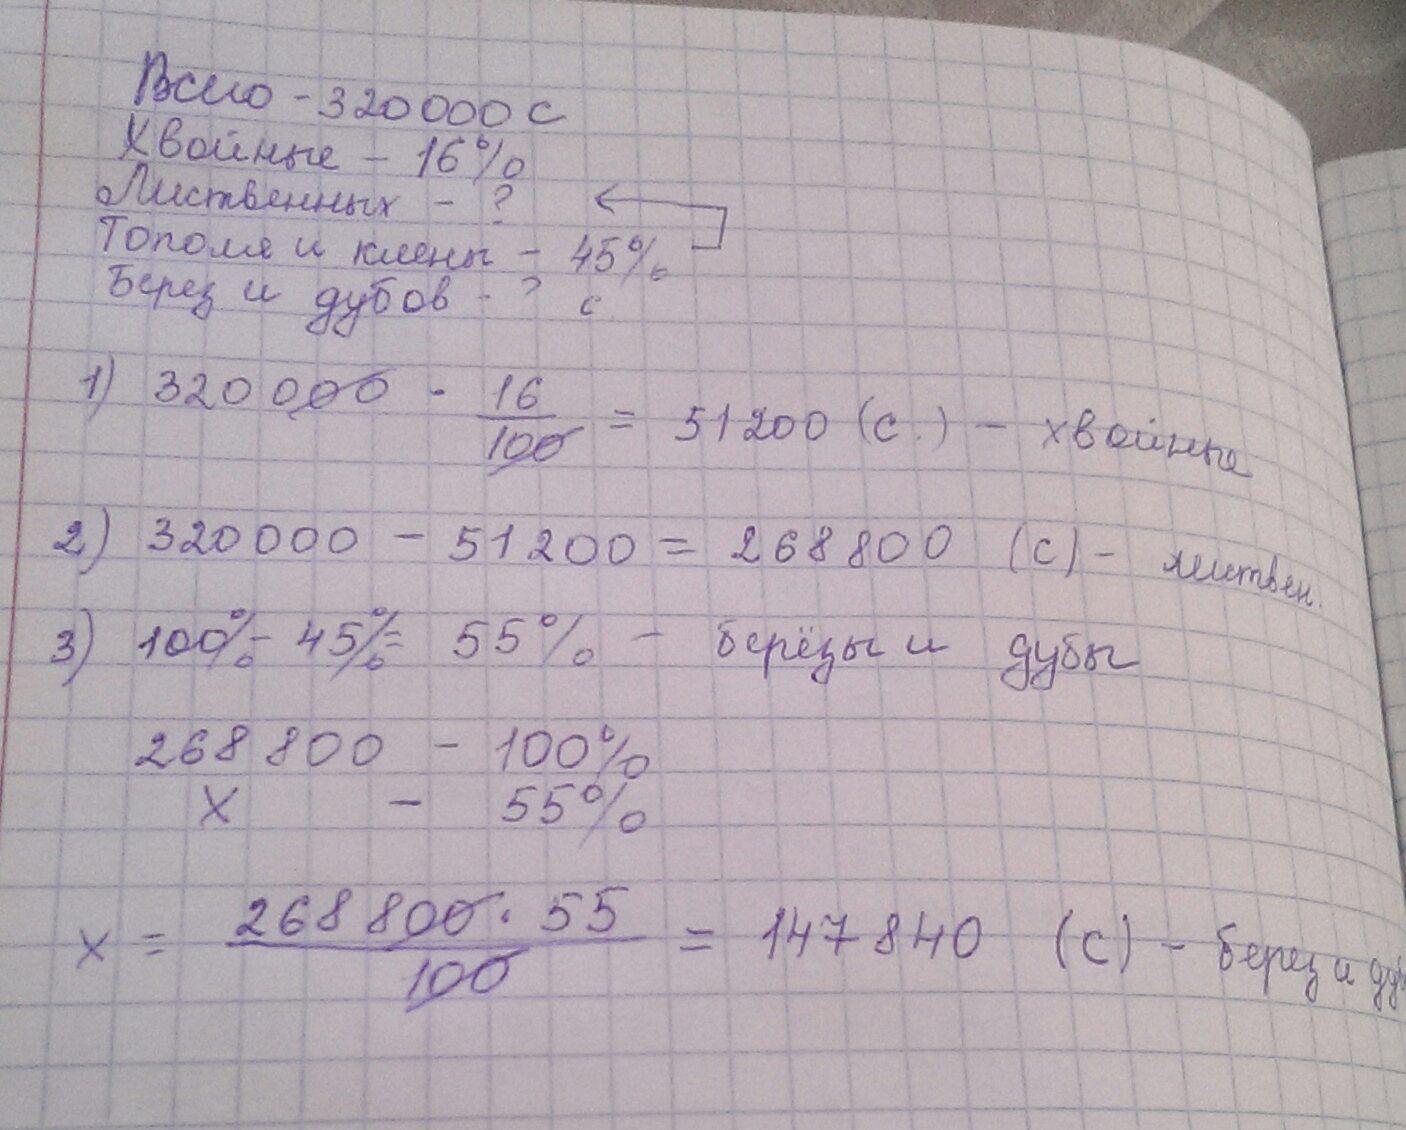 Всего - 320000 с
Хвойные - 16%
Лиственных - ?
Тополя и клены - 45%
Берез и дубов - ? с
1) 320000 · 16/100 = 51200 (с.) - хвойные
2) 320000 - 51200 = 268800 (с) - листвен.
3) 100% - 45% = 55% - берёзы и дубы
268800 - 100%
х - 55%
х = 268800 · 55/100 = 147840 (с) - берез и ду